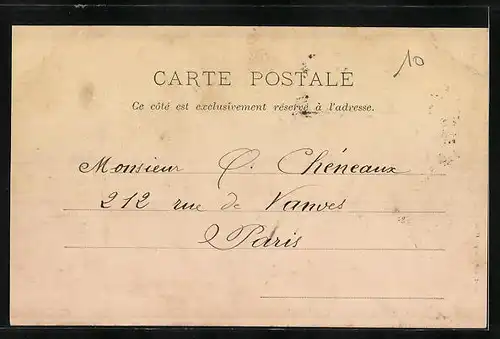 10
CARTE POSTALE
Ce côté est exclusivement réservé à l'adresse.
Monsieur O. Chéneaux
212 rue de Vanves
Paris